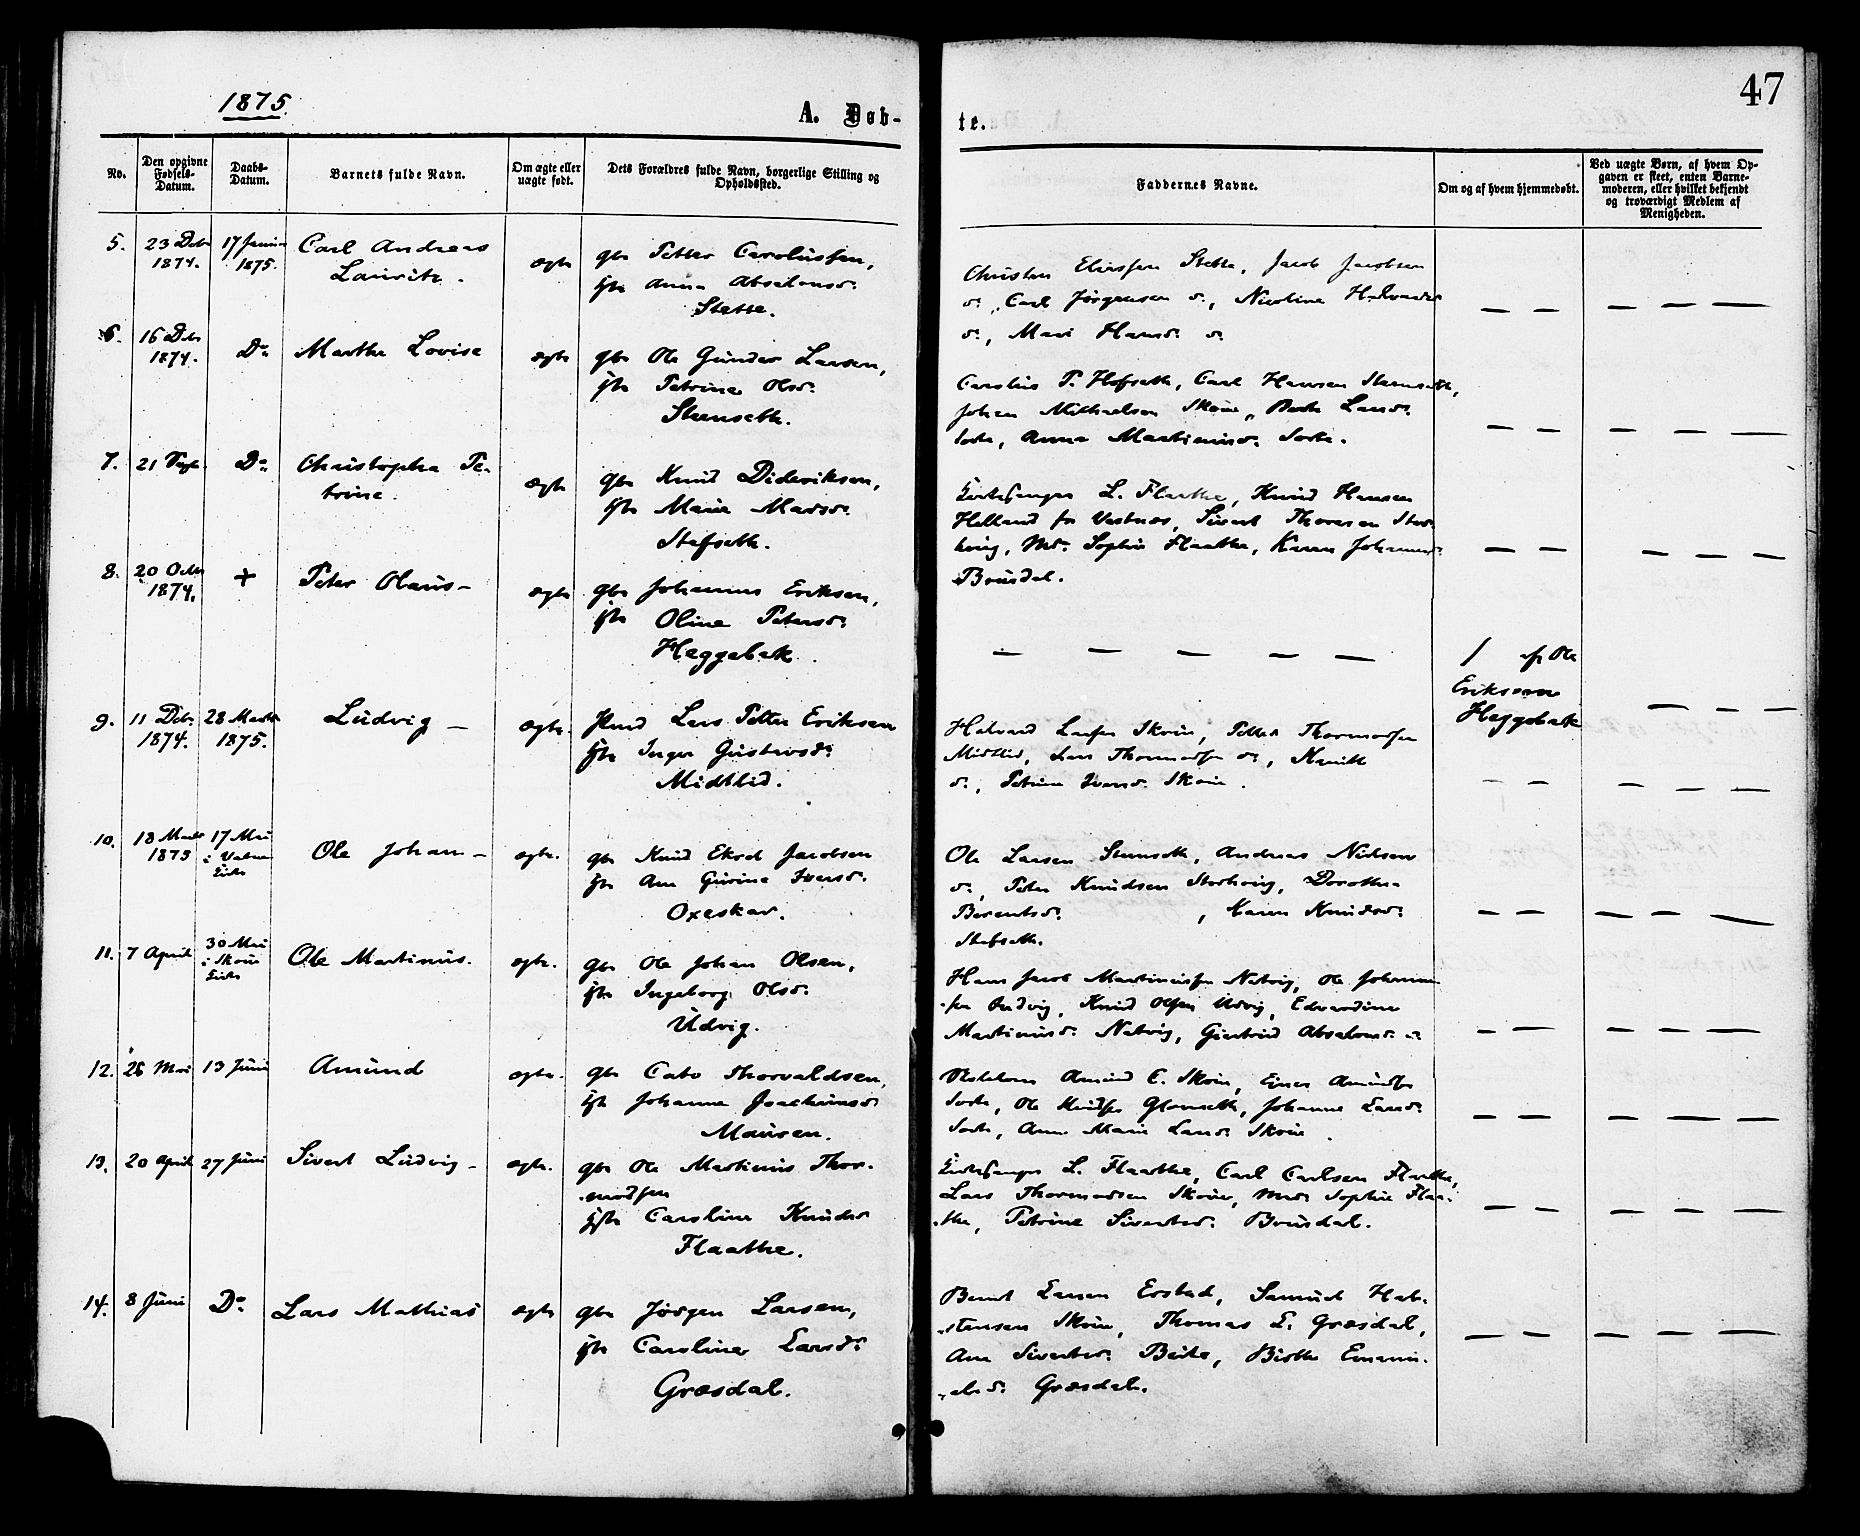 1875.
A. Døb-
te.
47
No.
Den opgivne Fødsels-Datum.
Daabs-Datum.
Barnets fulde Navn.
Om ægte eller uægte født.
Dets Forældres fulde Navn, borgerlige Stilling og Opholdssted.
Faddernes Navne.
Om og af hvem hjemmedøbt.
Ved uægte Børn, af hvem Op-
gaven er skeet, enten Barne-
moderen, eller hvilket bekjendt
og troværdigt Medlem af
Menigheden.
5. 23 Decbr 1874. 17 Januar 1875. Carl Andreas
Lauritz. ægte gbr Petter Carolussen,
Anna Absalonsd.
Stette.
Christen Stette, Jacob Jacobsen
d., Carl Jørgensen d., Nicoline
d., Mari Hansd. d.
6. 16 Decbr 1874. Do Marthe Lovise ægte gbr Ole Gunder Larsen,
Petrine Olsd.
Stenseth.
Carolus P. Hofseth, Carl Hansen Stenseth,
Johan Michaelsen Skoue, Larsd.
Anna Martinusd.
7. 21 Do Christopha Pe-
trine. ægte gbr Knud Dideriksen,
Marie Madsd.
Stafseth.
Kirkesanger L. Flaathe, Knud Hansen
Helland fr Vestnes, Sivert Thoresen Stor-
houg, Md. Sophie Flaathe, Karen
Brusdal.
8. 20 Octbr 1874. + Peter Olaus - ægte gbr Johannes Eriksen,
Oline Petersd.
Heggebak.
af Ole
Eriksen
Heggebak
9. 11 Decbr 1874. 28 Marts 1875. Ludvig - ægte. Lars Petter Eriksen
Inger Gustavsd.
Midtlid.
Halvard Larsen Skoue, Petter Thormodsen
Midtlid, Lars Thormodsen d.,
d., Petrine Iversd. Skoue.
10. 18 Marts 1875 17 Mai
i Vatne
Kirke Ole Johan - ægte. gbr Knud Jacobsen
Ane Gurine Iversd.
Oxeskar.
Ole Larsen Stenseth, Andreas Nielsen
d., Peter Knudsen Storhoug, Dorothea
Berentsd. , Karen Knudsd.
Stafseth.
11. 7 April 30 Mai
i Skoue
Kirke Ole Martinus. ægte. gbr Ole Johan Olsen,
Ingeborg Olsd.
Udvig.
Hans Jacob Martinussen Natvig, Ole Johannes-
sen Udvig, Knud Olsen Udvig, Edvardine
Martinusd. Natvig, Giertrud Absalonsd. d.
12. 26 Mai 13 Juni Amund ægte. gbr Cato Thorvaldsen,
Johanne Joachimsd.
Mauren.
Amund E. Skoue, Amundsen
Ole Knudsen Johanne Larsd.
Ane Marie Larsd. Skoue.
13. 20 April 27 Juni Sivert Ludvig - ægte. gbr Ole Martinus Thor-
modsen
Caroline Knudsd
Flaathe.
Kirkesanger L. Flaathe, Carl Carlsen Flaathe,
Lars Thormodsen Skoue, Md. Sophie Flaa-
the, Petrine Sivertsd. Brusdal.
14. 8 Juni Do Lars Mathias ægte gbr Jørgen Larsen,
Caroline Larsd.
Græsdal.
Bernt Larsen Erstad, Samuel Hal-
stensen Skoue, Thomas L. Græsdal,
Ane Sivertsd. Beite, Emanu-
elsd. Græsdal.